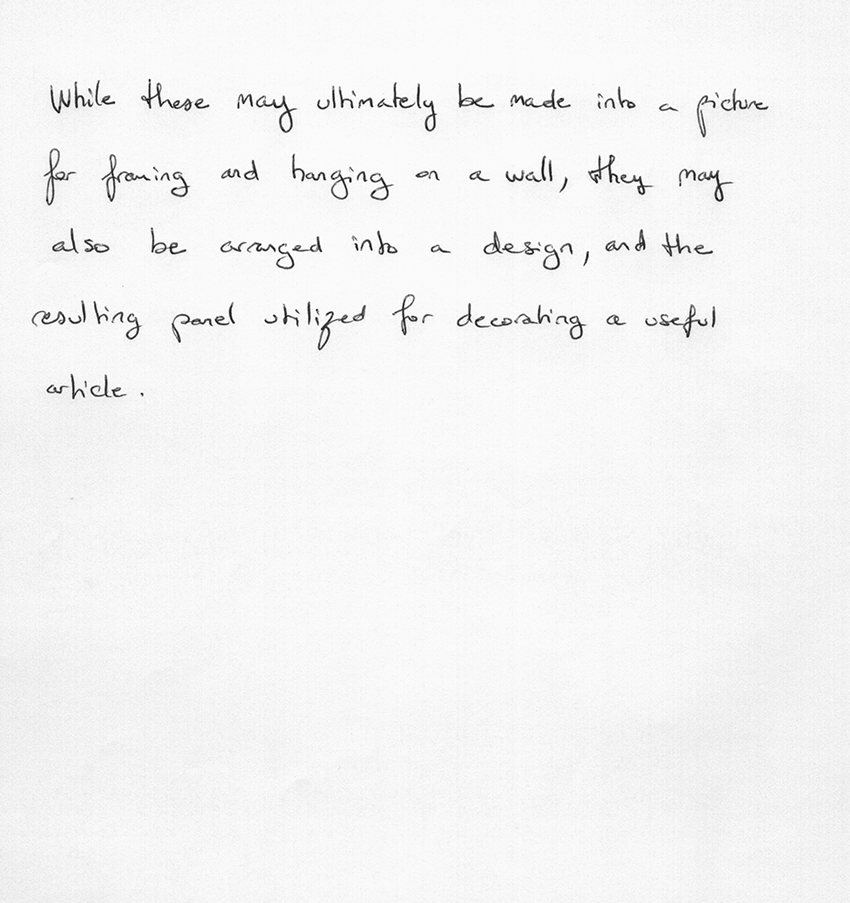 While these may ultimately be made into a picture
for framing and hanging on a wall, they may
also be arranged into a design, and the
resulting panel utilized for decorating a useful
article.